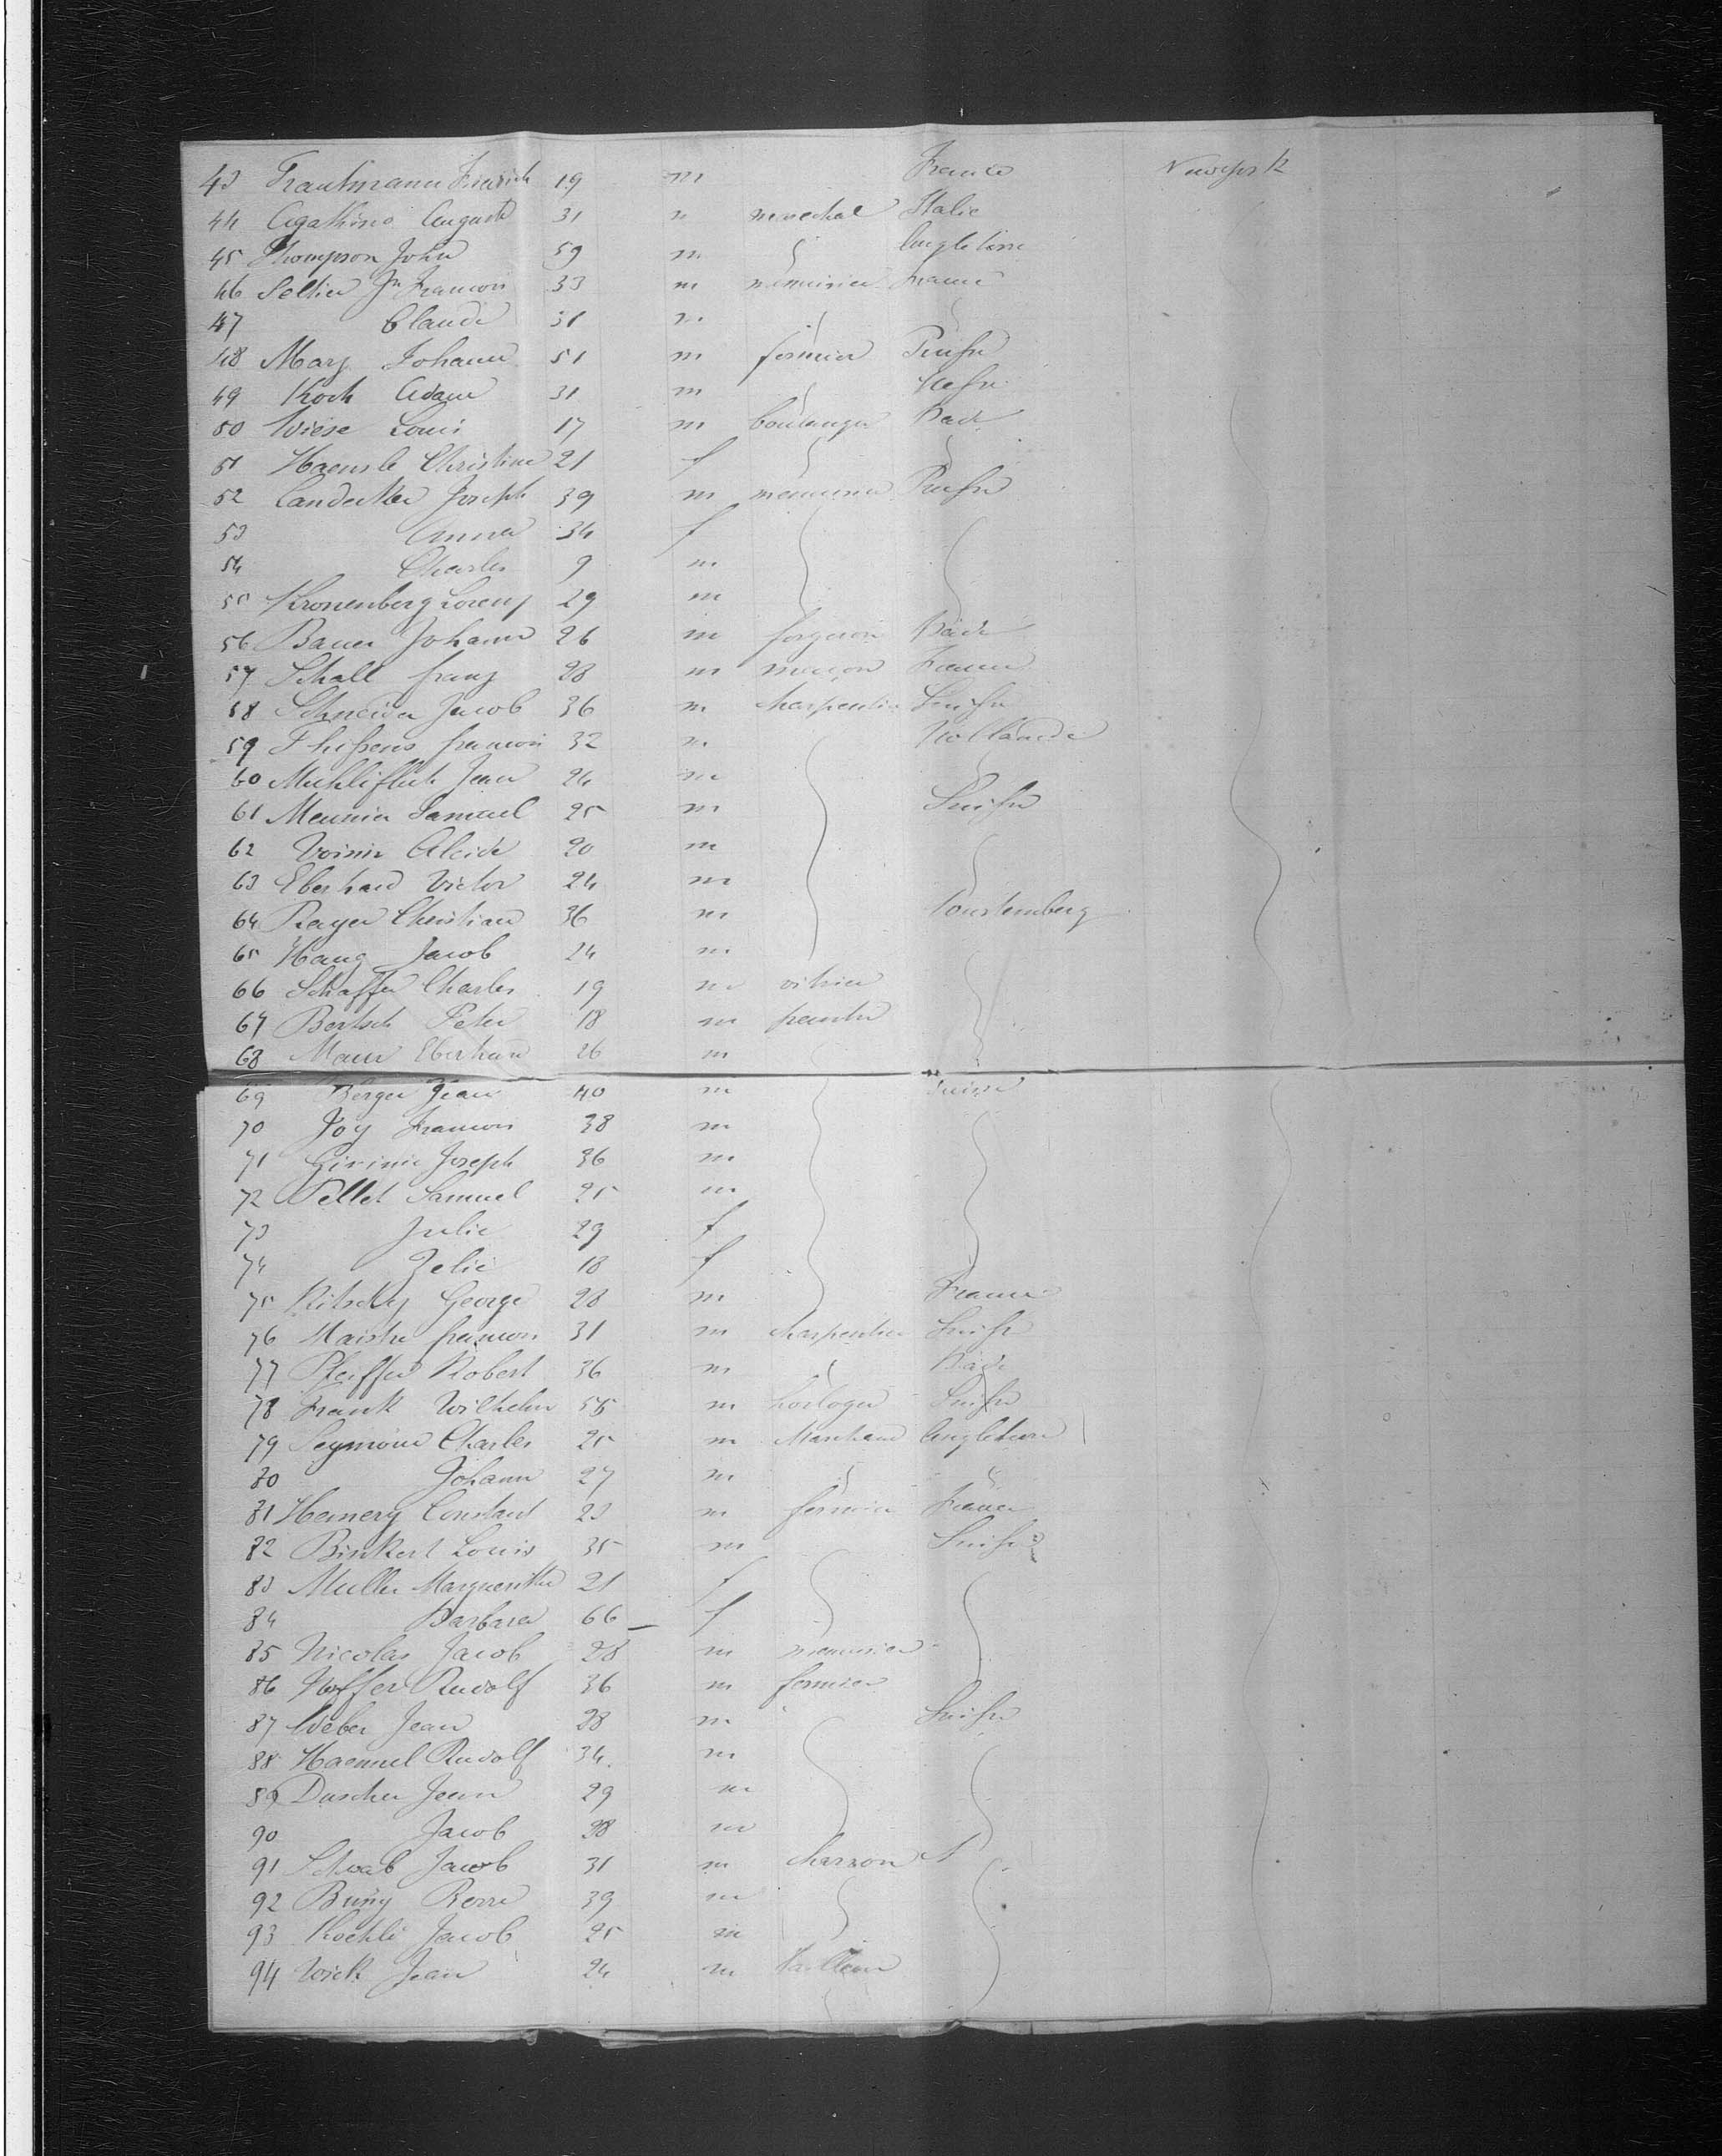 43 Trautmann Friedrich 19 m France Newyork
44 Agathino August 31 m marechal Italie
45 Thompson John 59 m Angleterre
46 Seltier Jn Francois 33 m menuisier France
47 Claude 31 m
48 Mary Johann 51 m fermier Prusse
49 Koch Adam 31 m Hesse
50 Wiese Louis 17 m boulanger Bade
51 Haensle Christine 21 f
52 Landecker Joseph 39 m menuisier Prusse
53 Anna 34 f
54 Charles 9 m
55 Kronenberg Lorenz 29 m
56 Bauer Johann 26 m forgeron Bade
57 Schall franz 28 m maçon France
58 Schneider Jacob 36 m charpentier Suisse
59 Thissens francois 32 m Hollande
60 Jean 24 m
61 Meunier Samuel 25 m Suisse
62 Voisin Alcide 20 m
63 Eberhard Victor 24 m
64 Rayer Christian 36 m Wurtemberg
65 Haug Jacob 24 m
66 Schaffer Charles 19 m vitrier
67 Bertsch Peter 18 m peintre
68 Maur Eberhard 26 m
69 Berger Jean 40 m Suisse
70 Joy Francois 38 m
71 Joseph 36 m
72 Pellet Samuel 25 m
73 Julie 29 f
74 Zelie 18 f
75 Kitschy George 28 m France
76 Maistre francois 31 m charpentier Suisse
77 Pfeiffer Robert 36 m Bade
78 Frank Wilhelm 55 m horloger Suisse
79 Seymour Charles 25 m Marchand Angleterre
80 Johann 27 m
81 Hemery Constant 23 m fermier France
82 Binkert Louis 35 m Suisse
83 Muller Marguerithe 21 f
84 Barbara 66 f
85 Nicolas Jacob 28 m menuisier
86 Hoffer Rudolf 36 m fermier
87 Weber Jean 28 m Suisse
88 Haemmel Rudolf 34 m
89 Dascher Jean 29 m
90 Jacob 28 m
91 Schwab Jacob 31 m charron
92 39 m
93 Koehli Jacob 25 m
94 Wick Jean 24 m tailleur